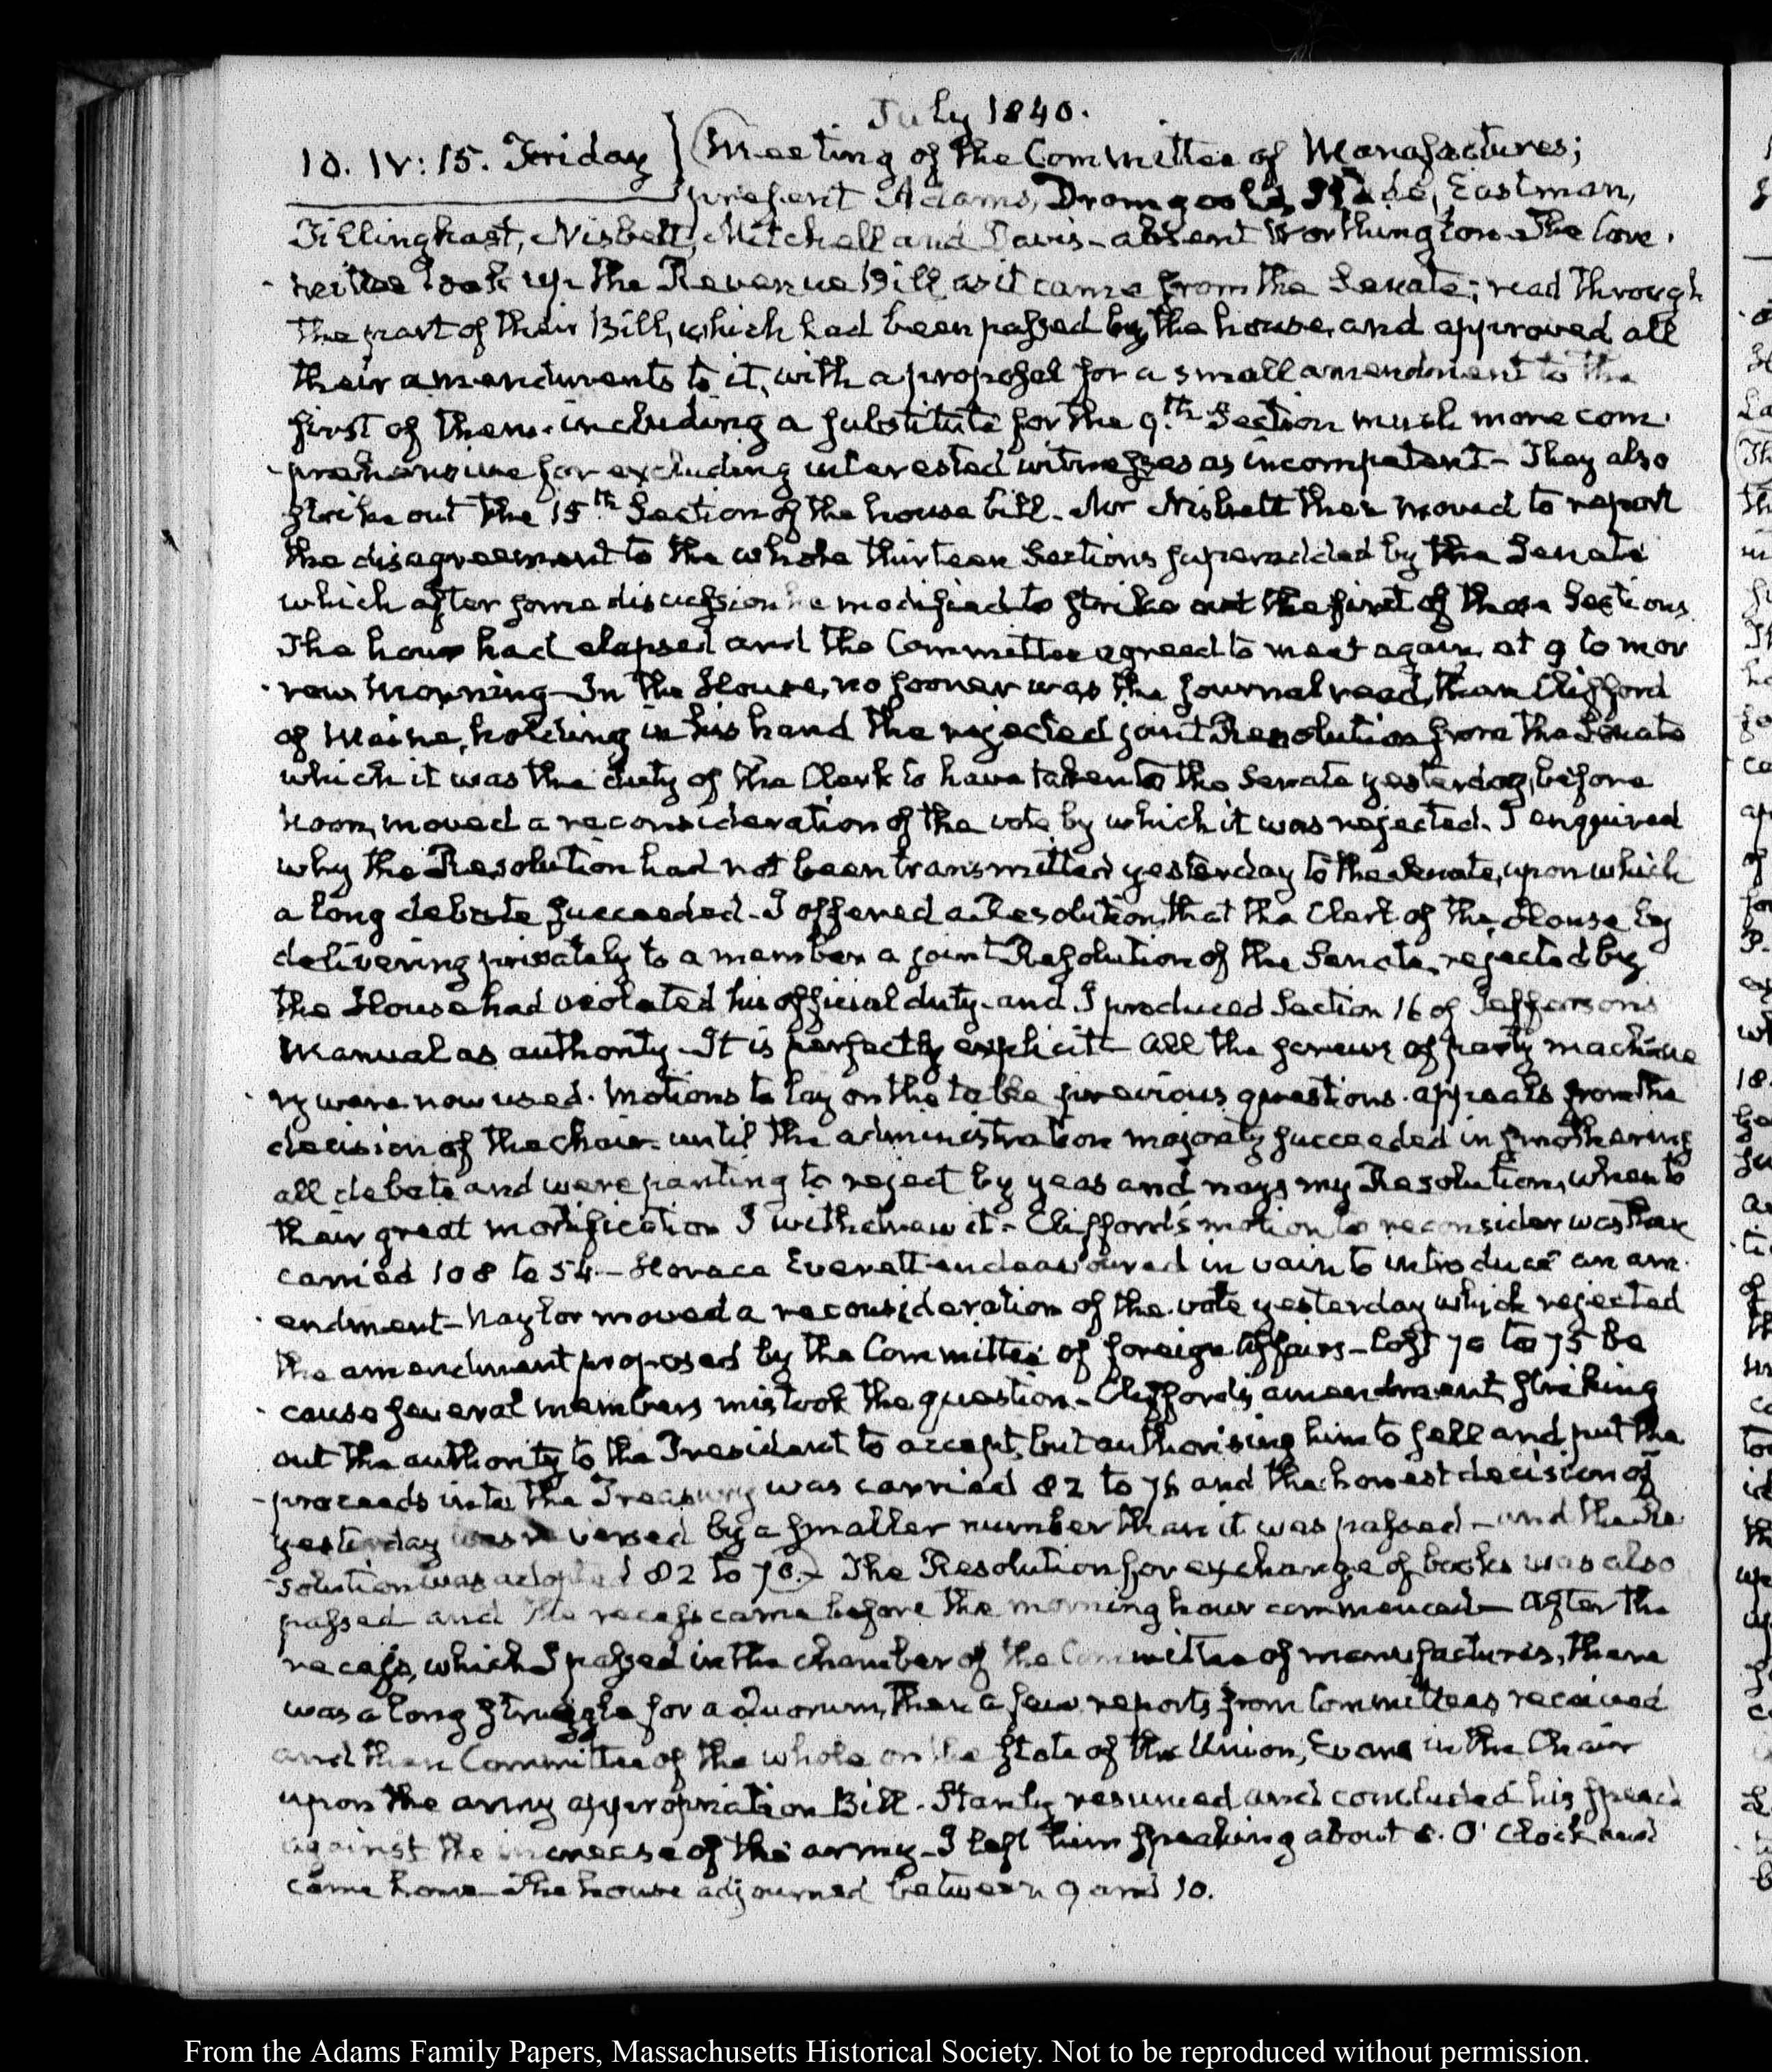 July 1840.
10. IV: 15. Friday } Meeting of the Committee of Manufactures;
present Adams, Dromgoole, Slade, Eastman,
Tillinghast, Nisbett, Mitchell and Davis - absent Worthington. The Com-
mittee took up the Revenue Bill as it came from the Senate; read through
the part of their Bill, which had been passed by the house, and approved all
their amendments to it, with a proposal for a small amendment to the
first of them. including a substitute for the 9.th Section much more com-
-prehensive for excluding interested witnesses as incompetent - They also
strike out the 15th Section of the house bill. Mr Nisbett then moved to report
the disagreement to the whole thirteen Sections superadded by the Senate
which after some discussion he modified to strike out the first of those Sections
The hour had elapsed and the Committee agreed to meet again at 9 to mor
-row Morning - In the House, no sooner was the journal read, than Clifford
of Maine, holding in his hand the rejected joint Resolution from the Senate
which it was the duty of the Clerk to have taken to the Senate yesterday, before
Noon, moved a reconsideration of the vote by which it was rejected. I enquired
why the Resolution had not been transmitted yesterday to the Senate, upon which
a long debate succeeded - I offered a Resolution, that the Clerk of the House by
delivering privately to a member a joint Resolution of the Senate, rejected by
the House had violated his official duty - and I produced Section 16 of Jefferson's
Manual as authority - It is perfectly explicit - All the screws of party machine
-ry were now used. Motions to lay on the table previous questions. appeals from the
decision of the chair. until the administration majority succeeded in smothering
all debate and were panting to reject by yeas and nays my Resolution, when to
their great mortification I withdrew it - Clifford's motion to reconsider was then
carried 108 to 54. - Horace Everett endeavoured in vain to introduce an am-
-endment - Naylor moved a reconsideration of the vote yesterday which rejected
the amendment proposed by the Committee of foreign Affairs - lost 70 to 75 be
-cause several members mistook the question. - Clifford's amendment, striking
out the authority to the President to accept, but authorising him to sell and put the
-proceeds into the Treasury was carried 82 to 76 and the honest decision of
yesterday was reversed by a smaller number than it was passed - and the Re-
-solution was adopted 82 to 70. - The Resolution for exchange of books was also
passed and the recess came before the morning hour commenced - After the
recess, which I passed in the chamber of the Committee of manufactures, there
was a long struggle for a Quorum, then a few reports from Committees received
and then Committee of the whole on the state of the Union, Evans in the Chair
upon the army appropriation Bill. Stanly resumed and concluded his speech
against the increase of the army - I left him speaking about 8. O'Clock and
came home - The house adjourned between 9 and 10.
From the Adams Family Papers, Massachusetts Historical Society. Not to be reproduced without permission.